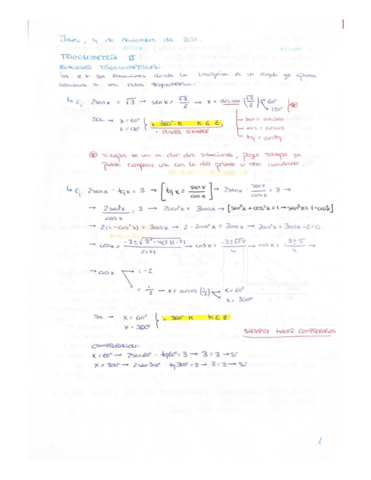 Jueves, 4 de noviembre de 2021.
TRIGONOMETRÍA II
ECUACIONES TRIGONOMÉTRICAS.
Las e.t son ecuaciones donde la incógnita es un ángulo y
una razón trigonométrica.
↳ Ej. 2senx = √3 → senx = √3/2 → x = arcsen(√3/2) 60º
120º
Sol → x = 60º
x = 120º
+ 360º·K K∈Z
→ PONER SIEMPRE
sen = arcsen
cos = arcos
tg = arctg
siempre te van a dar dos soluciones,
puede con la del primer u otro cuadrante.
↳ Ej. 2senx · tgx = 3 → [tgx = senx/cosx] → 2senx · senx/cosx = 3 →
→ 2sen²x/cosx = 3 → 2sen²x = 3cosx → [sen²x + cos²x = 1 → sen²x = 1-cos²x]
→ 2(1-cos²x) = 3cosx → 2-2cos²x = 3cosx → 2cos²x+3cosx-2=0
→ cosx = -3±√3²-4(2)(-2)/2(2) → cosx = -3±√25/4 → cosx = -3±5/4 →
→ cosx = -2
= 1/2 → x = arcos(1/2) x = 60º
x = 300º
Sol → x = 60º
x = 300º
+ 360º·K K∈Z
SIEMPRE HACER COMPROBACIÓN
COMPROBACIÓN:
x = 60º → 2sen60º · tg60º = 3 → 3 = 3 → Sí
x = 300º → 2sen300º · tg300º = 3 → 3 = 3 → Sí